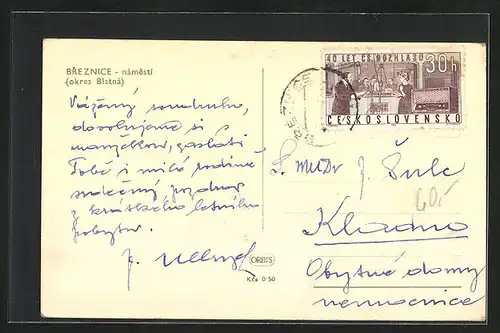 BŘEZNICE - náměstí
(okres Blatná)
40 LET ČS. ROZHLASU
30 h
ČESKOSLOVENSKO
Vážený soudruhu,
dovolujeme si s
manželkou, zaslati
Tobě i milé rodině
srdečný pozdrav
z krátkého letního
pobytu.
S. MUDr J. Šulc
60.-
Kladno
Obytné domy
nemocnice
ORBIS
Kčs 0·50